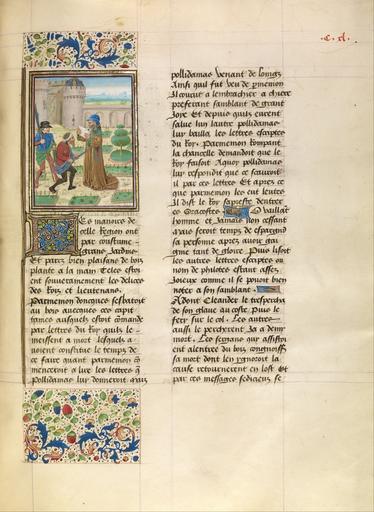 .C. xl.
Es manoirs de
celle Region ont
par coustume
grans Jardins
Et parcz bien plaisans de bois
plante a la main Telles estoi
ent souverainement les delices
des Roys et lieutenans.
Parmenion doncques sesbatoit
au bois avecques ces capit
taines ausquels estoit comande
par lettres du Roy quilz le
meissent a mort lesquelz a
voient constitue le temps de
ce faire quant parmenion co
menceroit a lire les lettres q
Pollidamas luy donneroit Mais
pollidamas venant de loings
Ainsi quil fut veu de parmenion
Il courut a lembrachier a chiere
presentant samblant de grant
Joye Et depuis quilz eurent
salue lun lautre pollidamas
luy bailla les lettres escriptes
du Roy. Parmenion Rompant
la chancelle demandoit que le
Roy faisoit Aquoy pollidamas
luy respondit que ce sauroit
il par ces lettres Et apres ce
que parmenion les eut leutes
Il dist le Roy
homme et Jamais non cessant
Mais seroit temps despargnier
sa personne apres avoir gai
gnie tant de gloire Puis lisoit
les autres lettres escriptes ou
nom de philotes estant assez
Joieux comme il se povoit bien
noter a son samblant.
Adont Cleander le tresperca
de son glaive au coste Puis le
ferir sur le col. Les autres
aussi le percherent Ja a demi
mort. Les sergans qui assistoi
ent alentree du bois congnoissans
sa mort dont ilz ygnoroient la
cause retournerent en lost Et
par ces messages sedicieux se